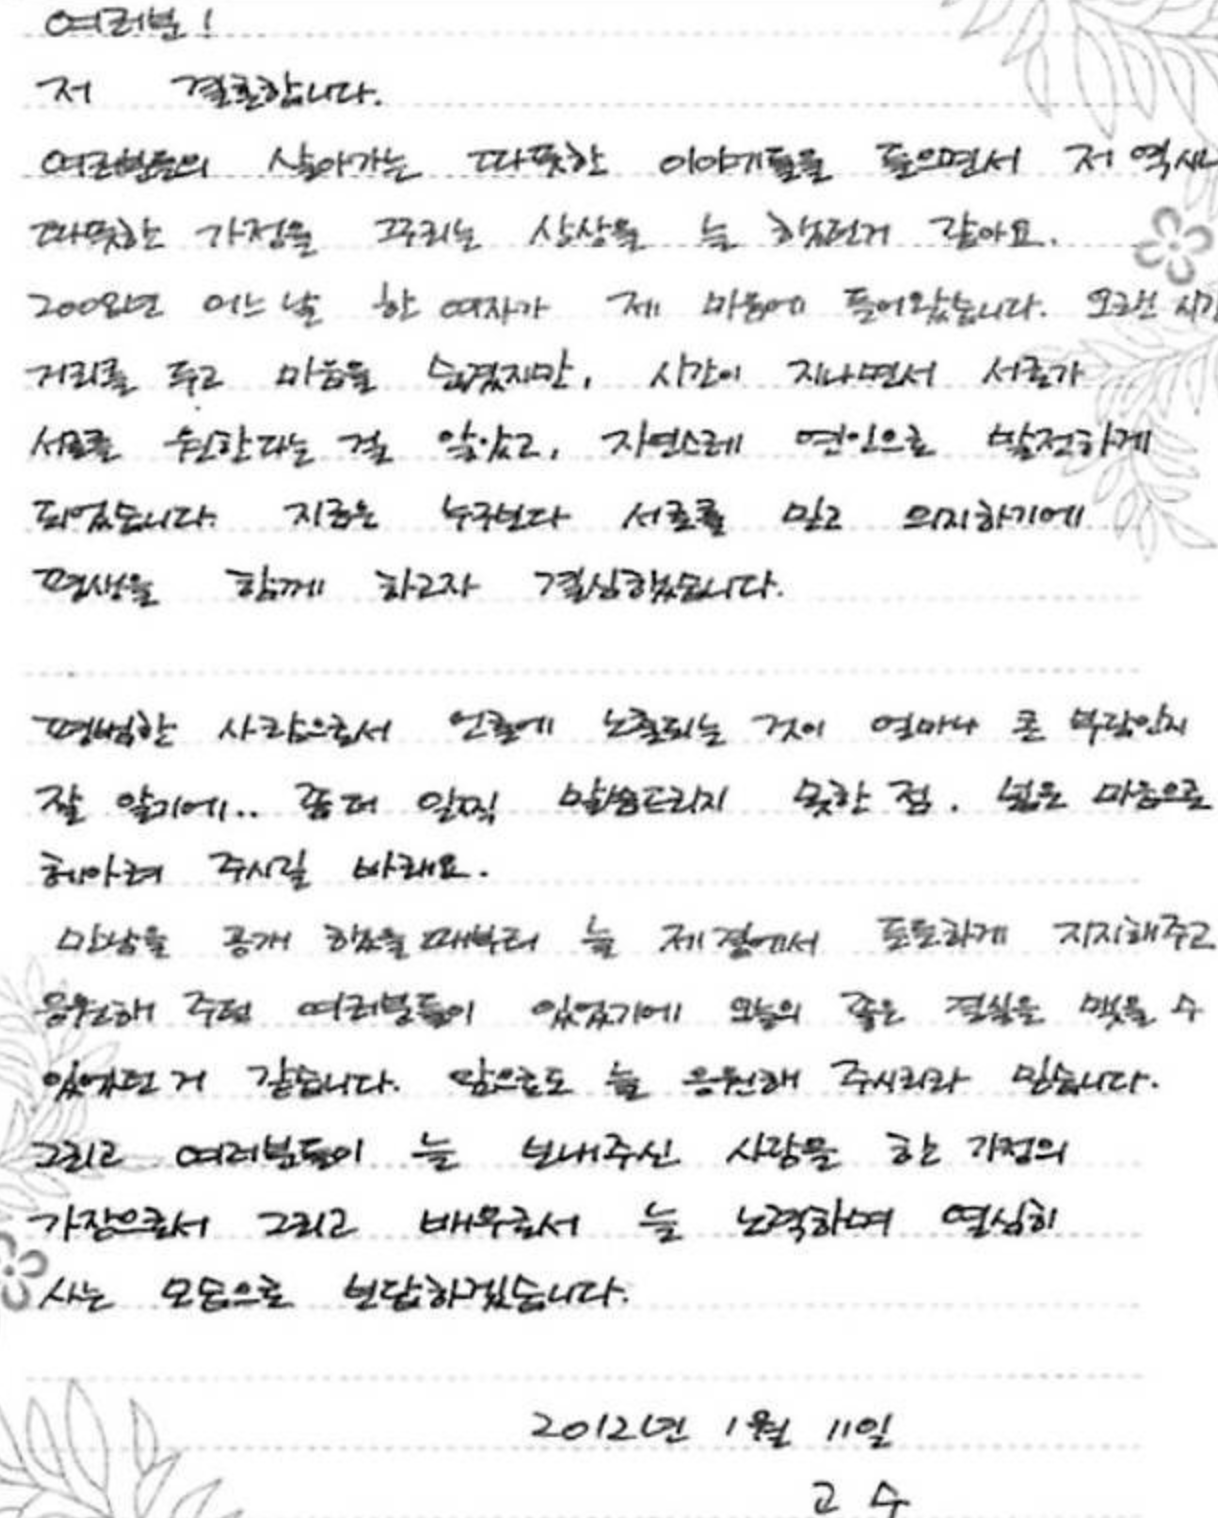 여러분!
저 결혼합니다.
여러분들의 살아가는 따뜻한 이야기들을 들으면서 저 역시
따뜻한 가정을 꾸리는 상상을 늘 했던거 같아요.
2008년 어느 날 한 여자가 제 마음에 들어왔습니다. 오랜 시간
거리를 두고 마음을 숨겼지만, 시간이 지나면서 서로가
서로를 원한다는 걸 알았고, 자연스레 연인으로 발전하게
되었습니다. 지금은 누구보다 서로를 믿고 의지하기에
평생을 함께 하고자 결심했습니다.
평범한 사람으로서 언론에 노출되는 것이 얼마나 큰 부담인지
잘 알기에.. 좀 더 일찍 말씀드리지 못한 점. 넓은 마음으로
헤아려 주시길 바래요.
만남을 공개 했을 때부터 늘 제 곁에서 돈독하게 지지해주고
응원해 주던 여러분들이 있었기에 오늘의 좋은 결실을 맺을 수
있었던 거 같습니다. 앞으로도 늘 응원해 주시리라 믿습니다.
그리고 여러분들이 늘 보내주신 사랑을 한 가정의
가장으로서 그리고 배우로서 늘 노력하며 열심히
사는 모습으로 보답하겠습니다.
2012년 1월 11일
고 수